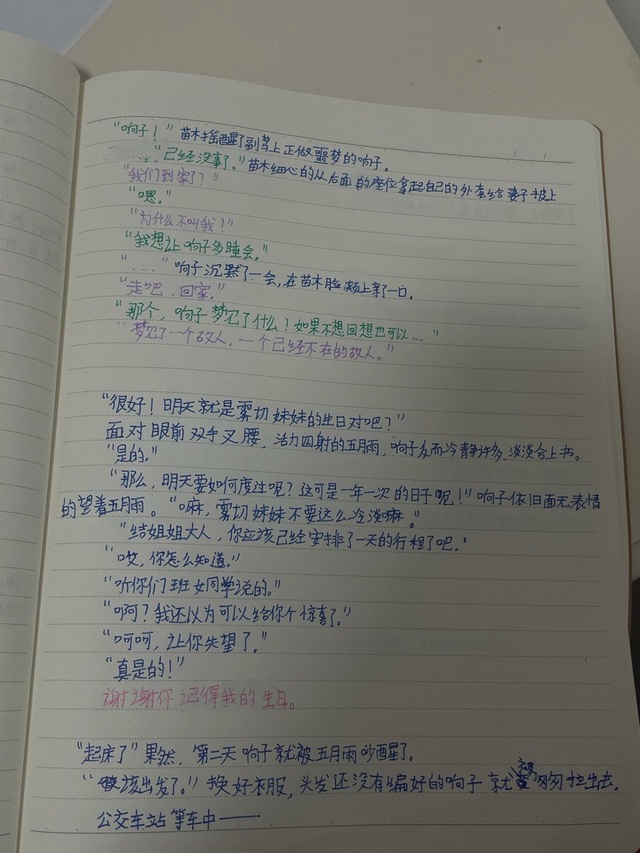 “响子！”苗木摇醒了副驾上正做噩梦的响子。
“已经没事了。”苗木细心的从后面的座位拿起自己的外套给妻子披上
“我们到家了？”
“嗯。”
“为什么不叫我？”
“我想让响子多睡会。”
“....”响子沉默了一会，在苗木脸颊上亲了一口。
“走吧，回家。”
“那个，响子梦见了什么？如果不想回想也可以...”
“梦见了一个故人，一个已经不在的故人。”
“很好！明天就是雾切妹妹的生日对吧？”
面对眼前双手叉腰，活力四射的五月雨，响子反而冷静许多，淡淡合上书。
“是的。”
“那么，明天要如何度过呢？这可是一年一次的日子呢！”响子依旧面无表情
的望着五月雨。“嘛，雾切妹妹不要这么冷淡嘛。”
“结姐姐大人，你应该已经安排了一天的行程了吧。”
“哎，你怎么知道。”
“听你们班女同学说的。”
“啊？我还以为可以给你个惊喜了。”
“呵呵，让你失望了。”
“真是的！”
谢谢你记得我的生日。
“起床了”果然，第二天响子就被五月雨吵醒了。
“该出发了。”换好衣服，头发还没有编好的响子就匆匆拉出去。
公交车站等车中——